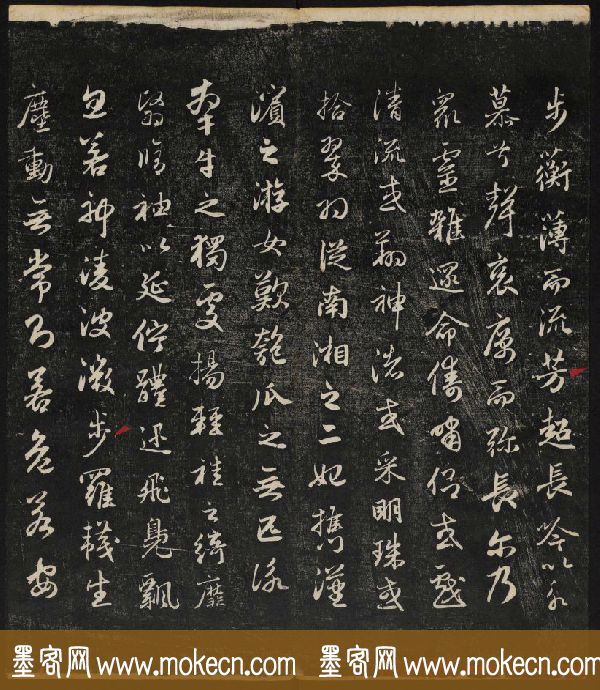 步蘅薄而流芳超長吟以永
慕兮聲哀厲而弥長尔乃
眾靈雜遝命儔嘯侣或戲
清流或翔神渚或采明珠或
拾翠羽從南湘之二妃攜漢
濱之游女歎匏瓜之無匹詠
牽牛之獨處揚輕袿之綺靡
翳脩袖以延佇體迅飛鳧飄
忽若神淩波微步羅襪生
塵動無常則若危若安
墨客网 www.mokecn.com 墨客网 www.mokecn.com